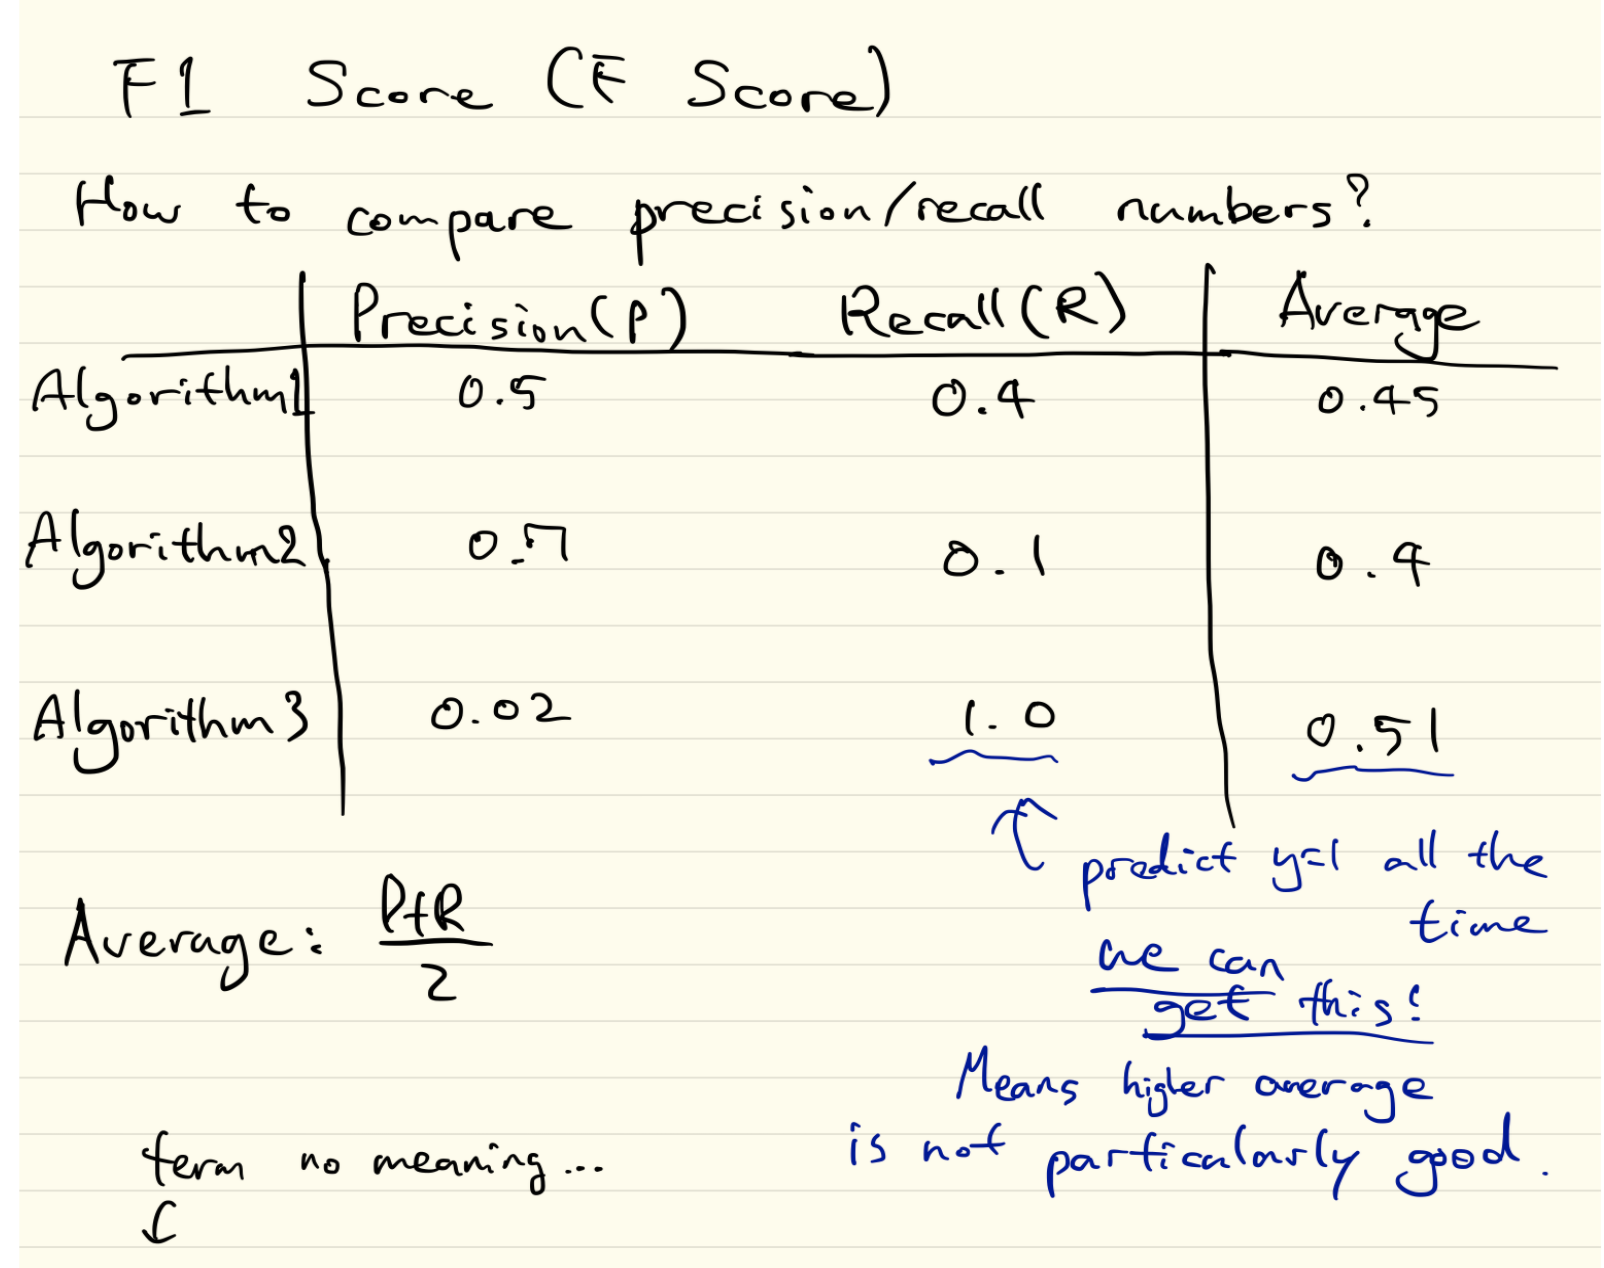 F1 Score (F Score)
How to compare precision/recall numbers?
Precision(P) Recall(R) Average
Algorithm1 0.5 0.4 0.45
Algorithm2 0.7 0.1 0.4
Algorithm3 0.02 1.0 0.51
predict y=1 all the
time
we can
get this!
Average: P+R
2
Means higher average
is not particularly good.
term no meaning...